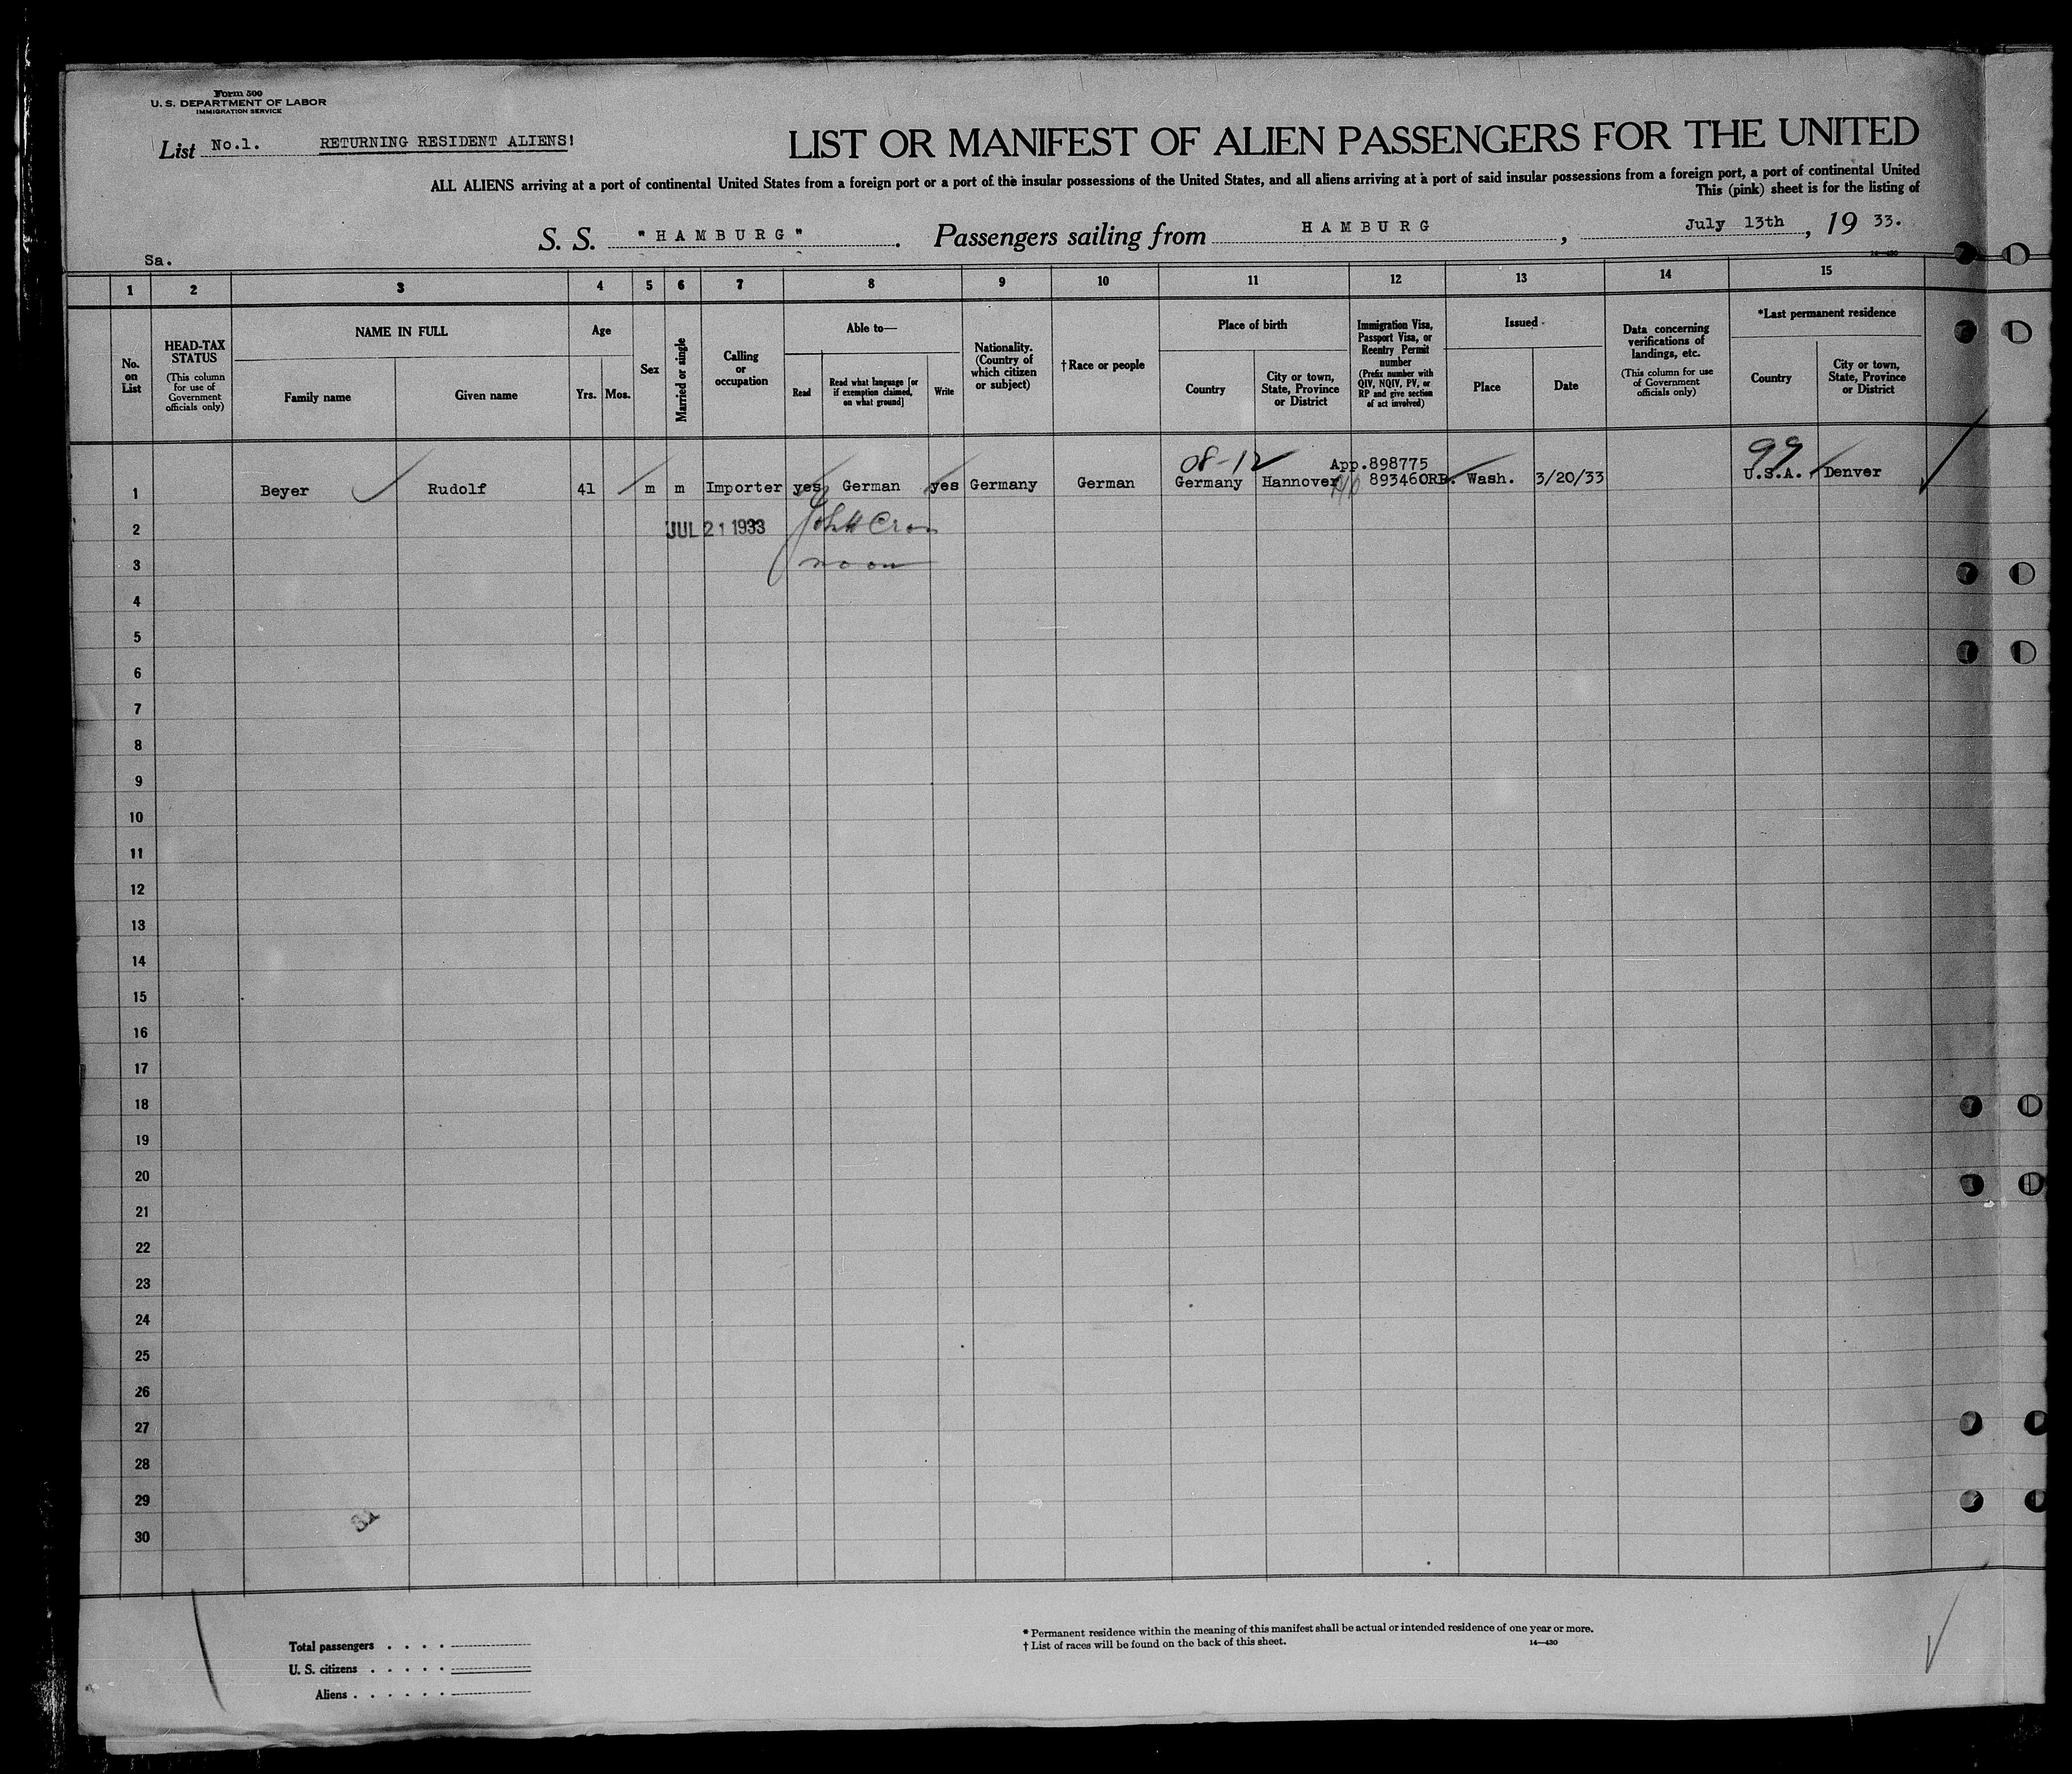 Form 500
U. S. DEPARTMENT OF LABOR
IMMIGRATION SERVICE
List No.1. RETURNING RESIDENT ALIENS!
LIST OR MANIFEST OF ALIEN PASSENGERS FOR THE UNITED
ALL ALIENS arriving at a port of continental United States from a foreign port or a port of the insular possessions of the United States, and all aliens arriving at a port of said insular possessions from a foreign port, a port of continental United
This (pink) sheet is for the listing of
S. S. "HAMBURG". Passengers sailing from HAMBURG, July 13th, 19 33.
Sa.
14—430
1 2 3 4 5 6 7 8 9 10 11 12 13 14 15
No. on List
HEAD-TAX STATUS
(This column for use of Government officials only)
NAME IN FULL
Family name
Given name
Age
Yrs. Mos.
Sex
Married or single
Calling or occupation
Able to—
Read
Read what language [or if exemption claimed, on what ground]
Write
Nationality. (Country of which citizen or subject)
†Race or people
Place of birth
Country
City or town, State, Province or District
Immigration Visa, Passport Visa, or Reentry Permit number
(Prefix number with QIV, NQIV, PV, or RP and give section of act involved)
Issued
Place
Date
Data concerning verifications of landings, etc.
(This column for use of Government officials only)
*Last permanent residence
Country
City or town, State, Province or District
08-12
App.898775
99
1 Beyer Rudolf 41 m m Importer yes German yes Germany German Germany Hannover 893460RD. Wash. 3/20/33 U.S.A. Denver
2 JUL 21 1933
3 noon
4
5
6
7
8
9
10
11
12
13
14
15
16
17
18
19
20
21
22
23
24
25
26
27
28
29
30
Total passengers . . . .
U. S. citizens . . . . .
Aliens . . . . . .
* Permanent residence within the meaning of this manifest shall be actual or intended residence of one year or more.
† List of races will be found on the back of this sheet.
14—430